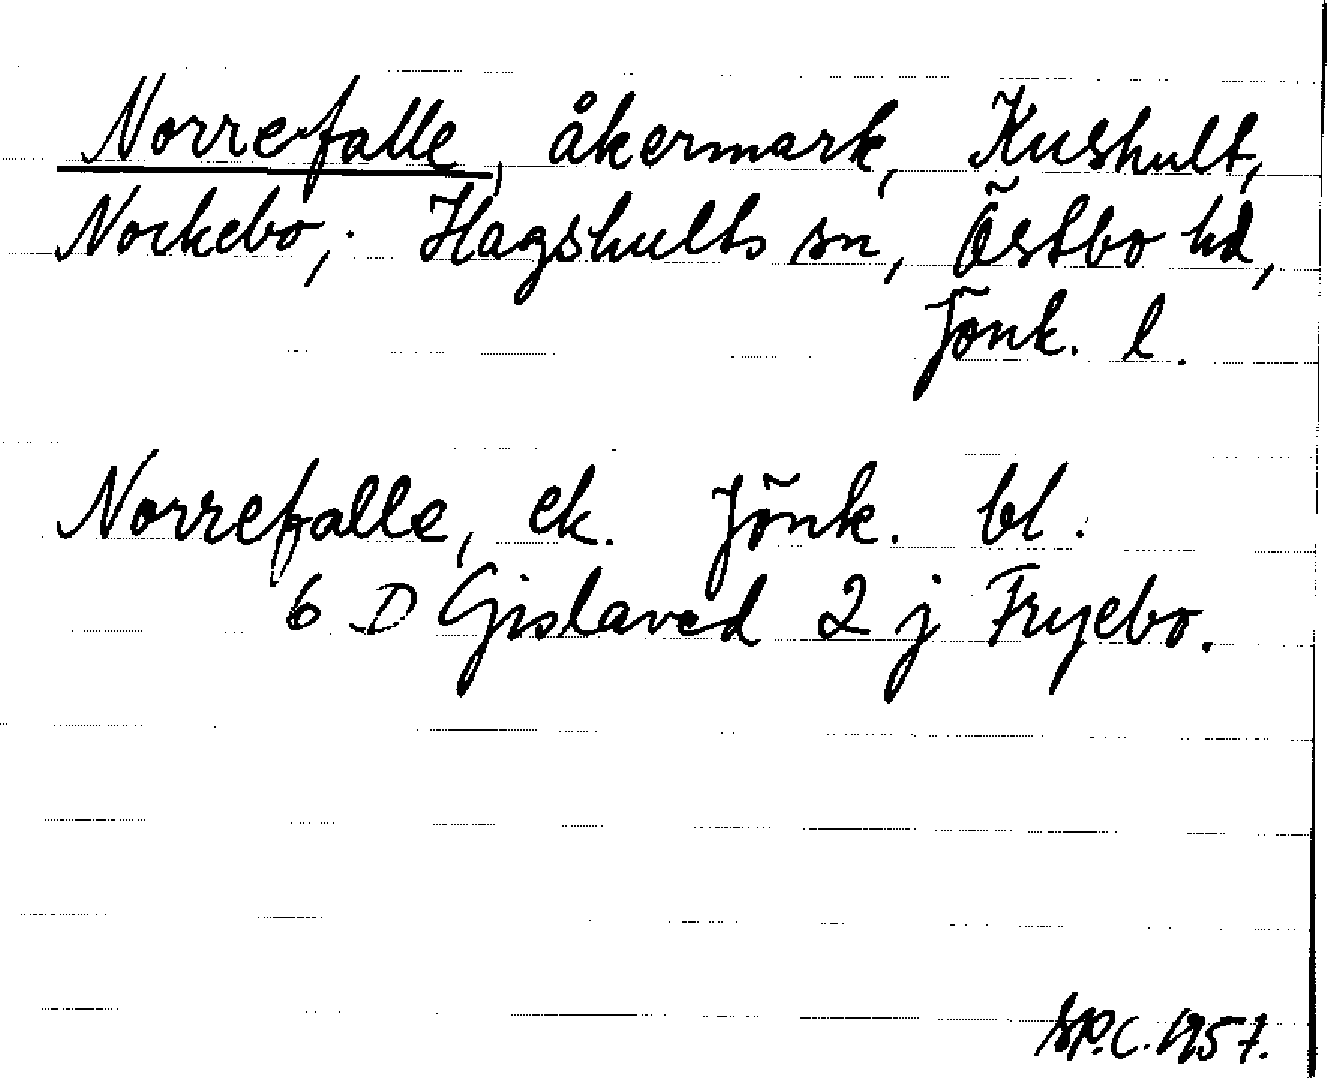 Norrefalle, åkermark, Kushult,
Nockebo; Hagshults sn, Östbo hd,
Jönk. l.
Norrefalle, ek. Jönk. bl.
6 D Gislaved 2 j Fryebo.
1957.